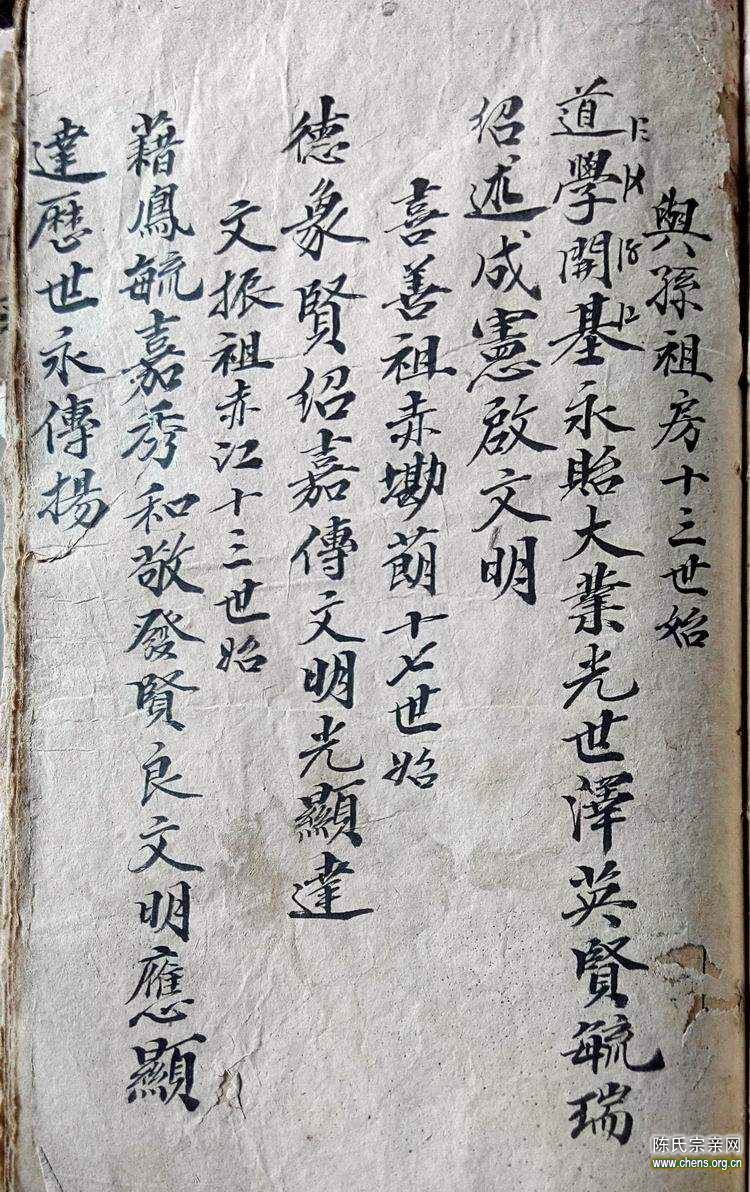 與孫祖房十三世始
道學開基永貽大業光世澤英賢毓瑞
紹述成憲啟文明
喜善祖赤墈萠十七世始
德象賢紹嘉傳文明光顯達
文振祖赤江十三世始
藉鳳毓嘉秀和敬發賢良文明應顯
達歷世永傳揚
陈氏宗亲网
www.chens.org.cn